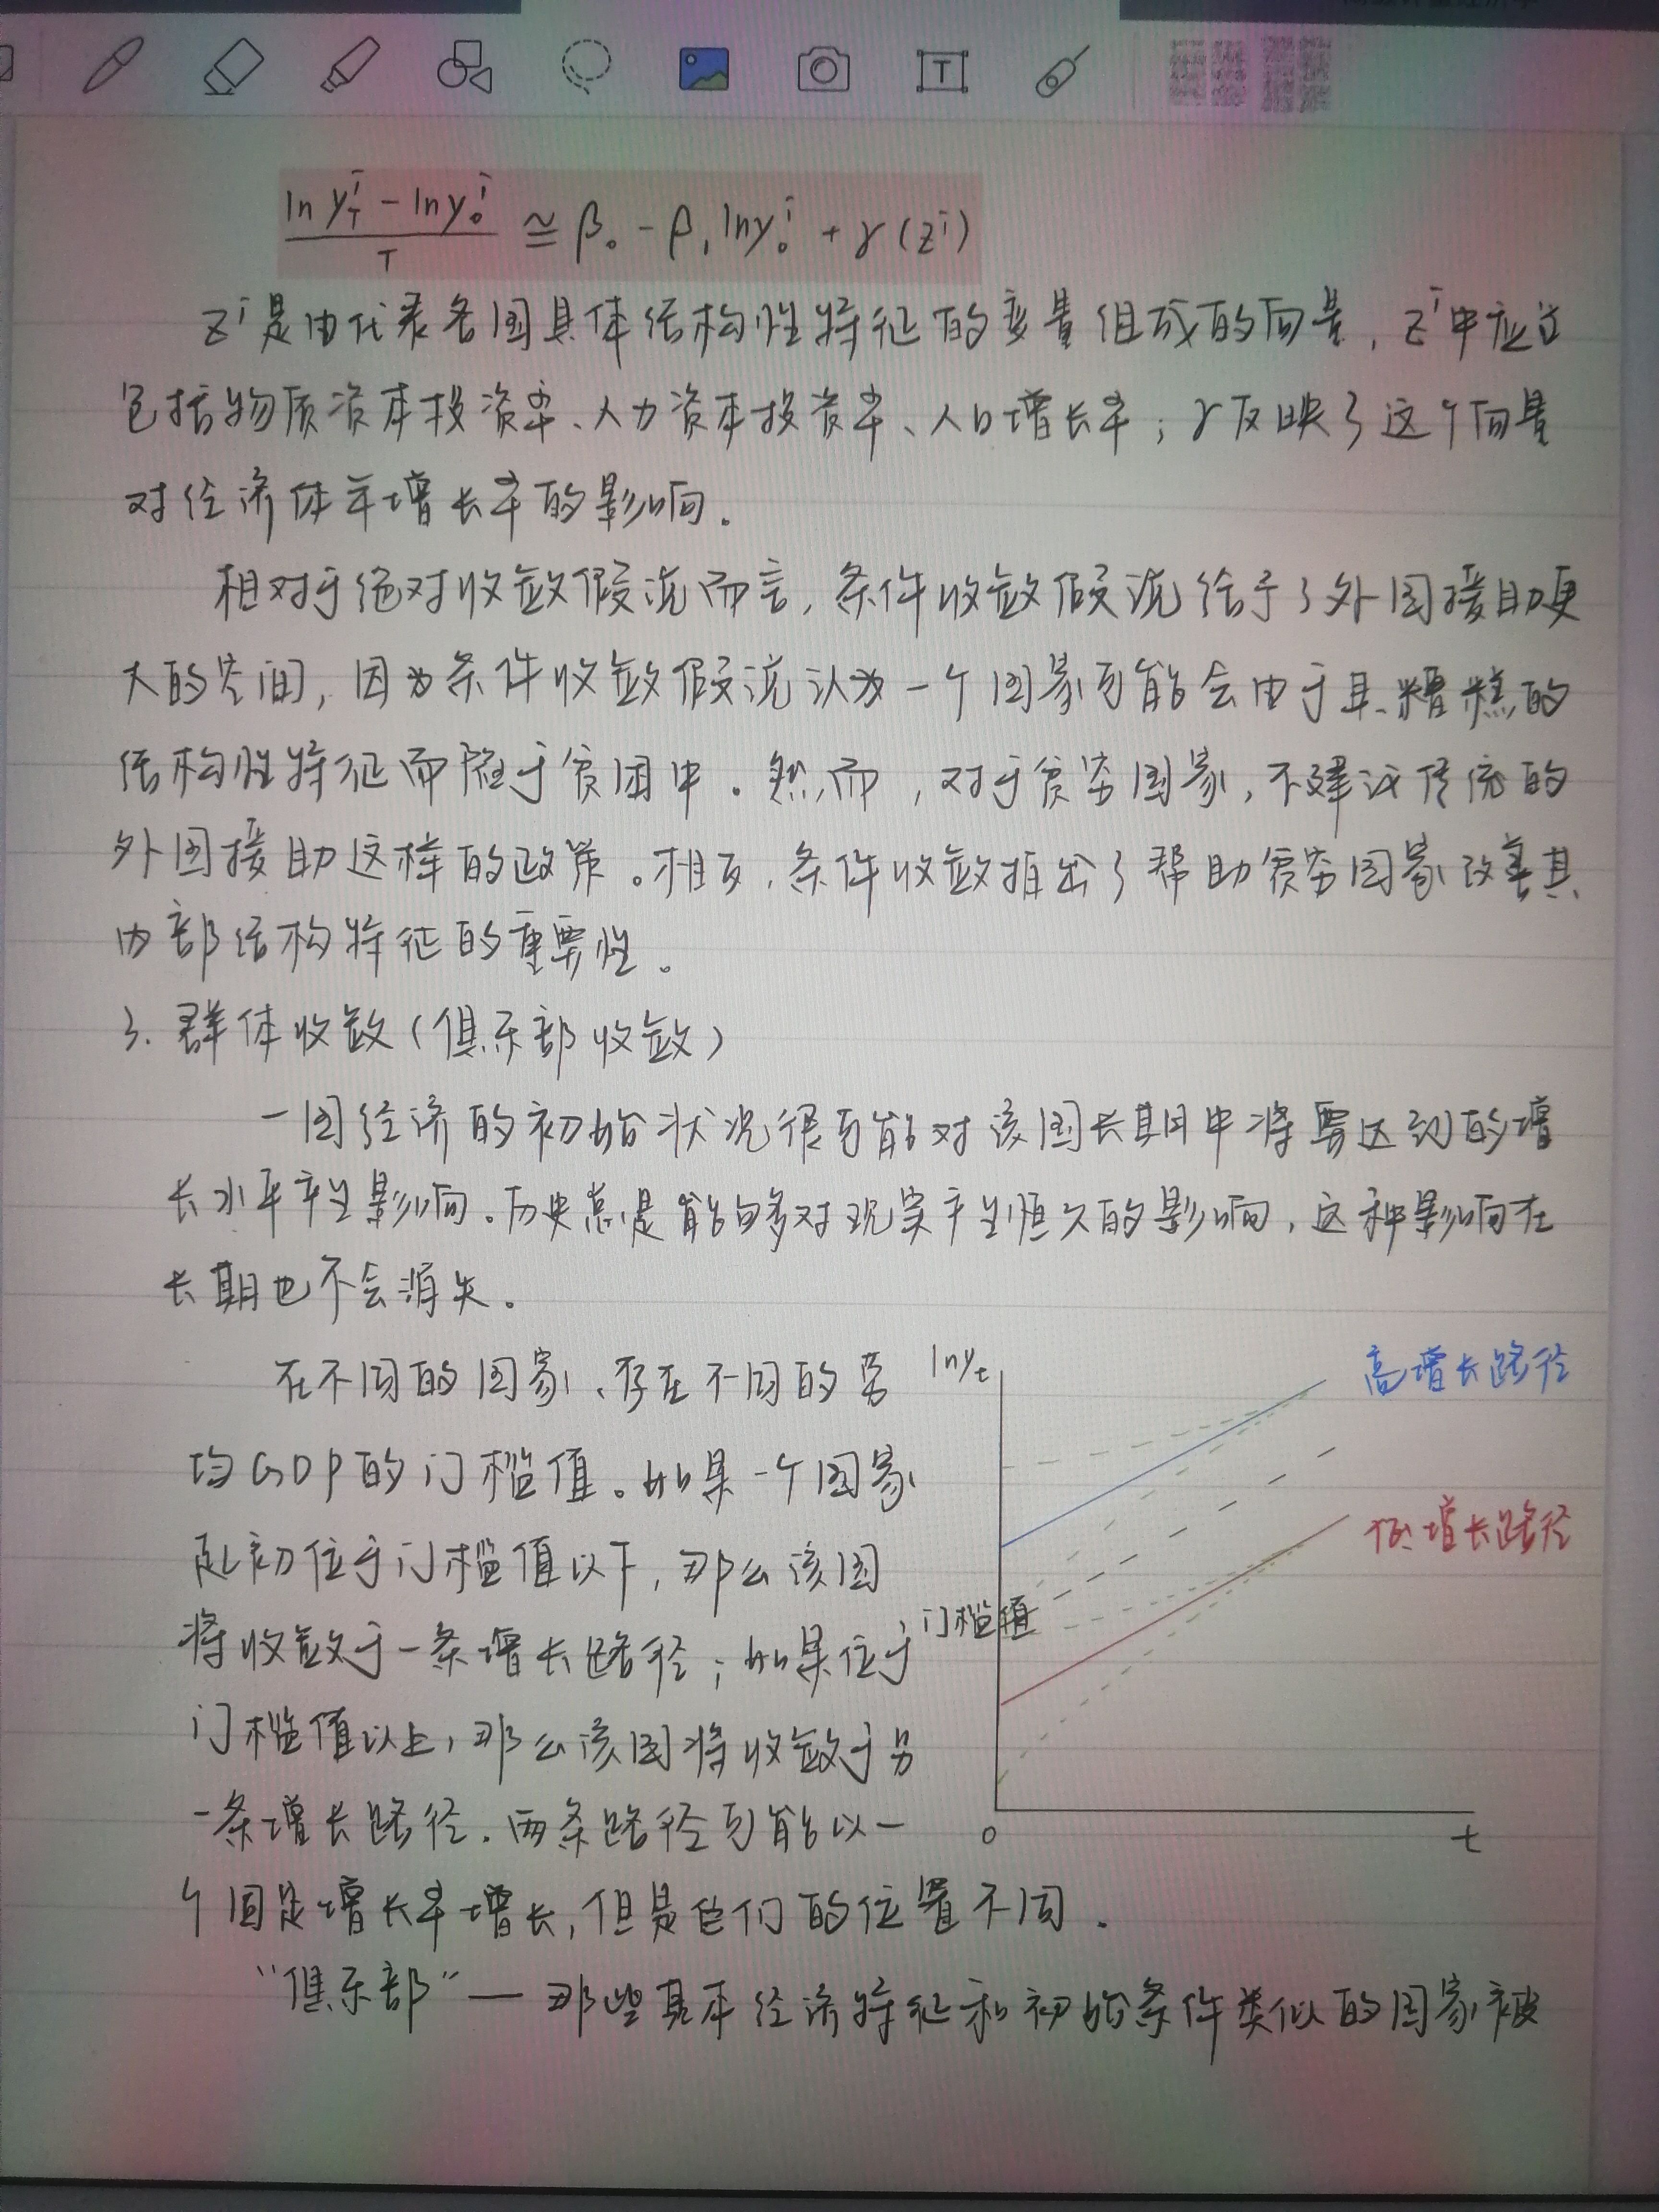 (ln y_T^i - ln y_0^i) / T ≅ β_0 - β_1 ln y_0^i + γ(z^i)
z^i是由代表各国具体结构性特征的变量组成的向量，z^i中应该
包括物质资本投资率、人力资本投资率、人口增长率；γ反映了这个向量
对经济体年增长率的影响。
相对于绝对收敛假说而言，条件收敛假说给予了外国援助更
大的空间，因为条件收敛假说认为一个国家可能会由于其糟糕的
结构性特征而陷于贫困中。然而，对于贫穷国家，不建议传统的
外国援助这样的政策。相反，条件收敛指出了帮助贫穷国家改善其
内部结构特征的重要性。
3. 群体收敛（俱乐部收敛）
一国经济的初始状况很可能对该国长期中将要达到的增
长水平产生影响。历史总是能够对现实产生恒久的影响，这种影响在
长期也不会消失。
在不同的国家，存在不同的劳
均GDP的门槛值。如果一个国家
起初位于门槛值以下，那么该国
将收敛于一条增长路径；如果位于
门槛值以上，那么该国将收敛于另
一条增长路径。两条路径可能以一
个固定增长率增长，但是它们的位置不同．
“俱乐部”— 那些基本经济特征和初始条件类似的国家被
ln y_t
高增长路径
低增长路径
门槛值
0
t
T